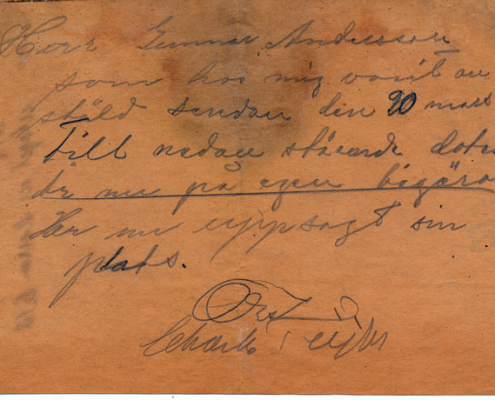 Herr Gunnar Andersson
som hos mig varit an
stäld sendan din 20 mars
till nedan stående datu
är nu på egen begära
Har nu uppsagt sin
plats.